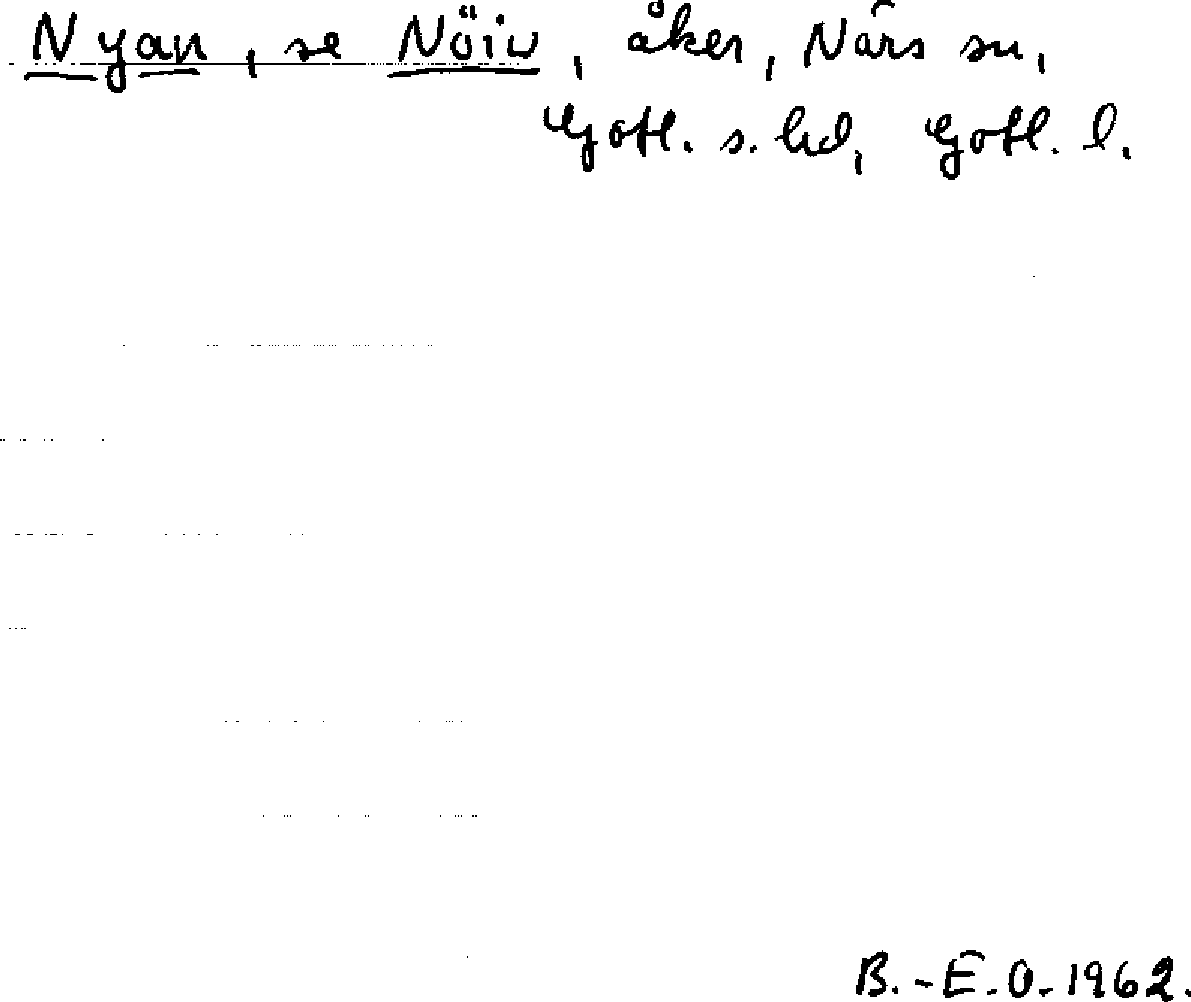 Nyan, se Nöiu, åker, Närs sn,
Gotl. s. hd, Gotl. l.
B.-E.O. 1962.